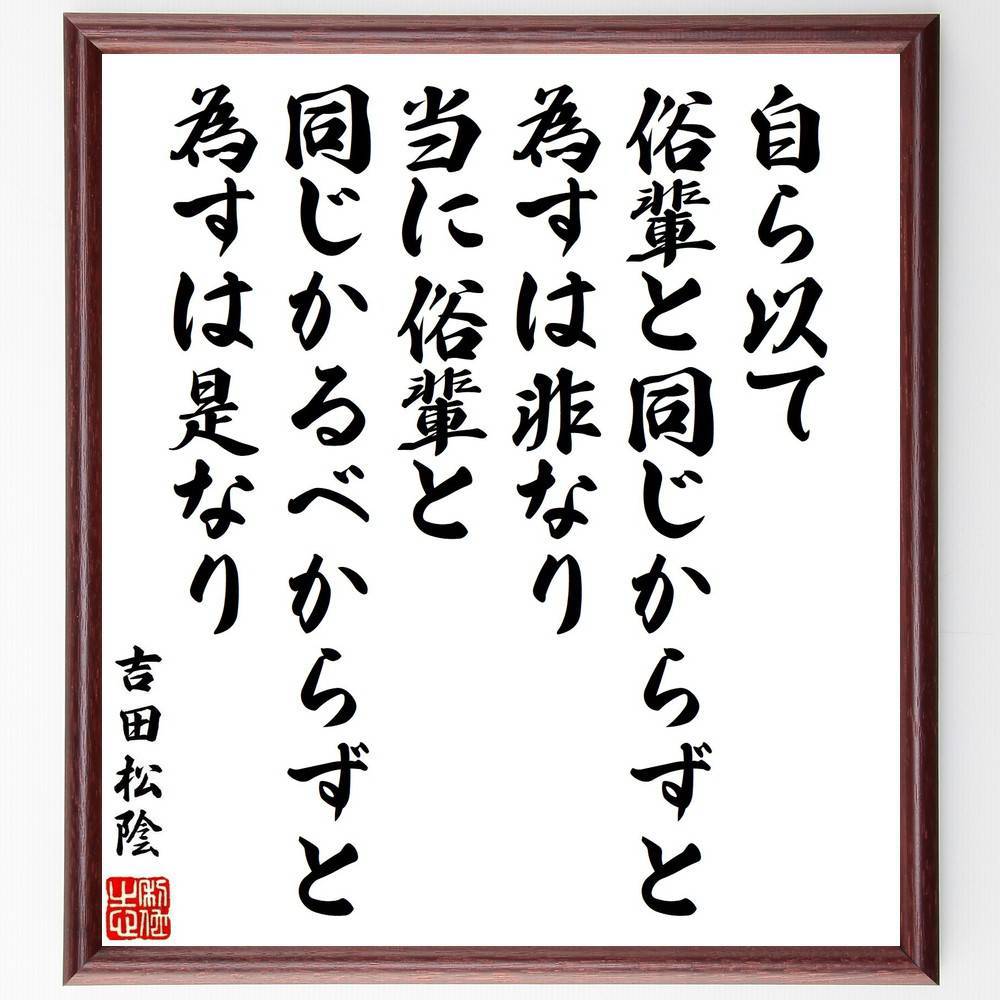 自ら以て
俗輩と同じからずと
為すは非なり
当に俗輩と
同じかるべからずと
為すは是なり
吉田松陰